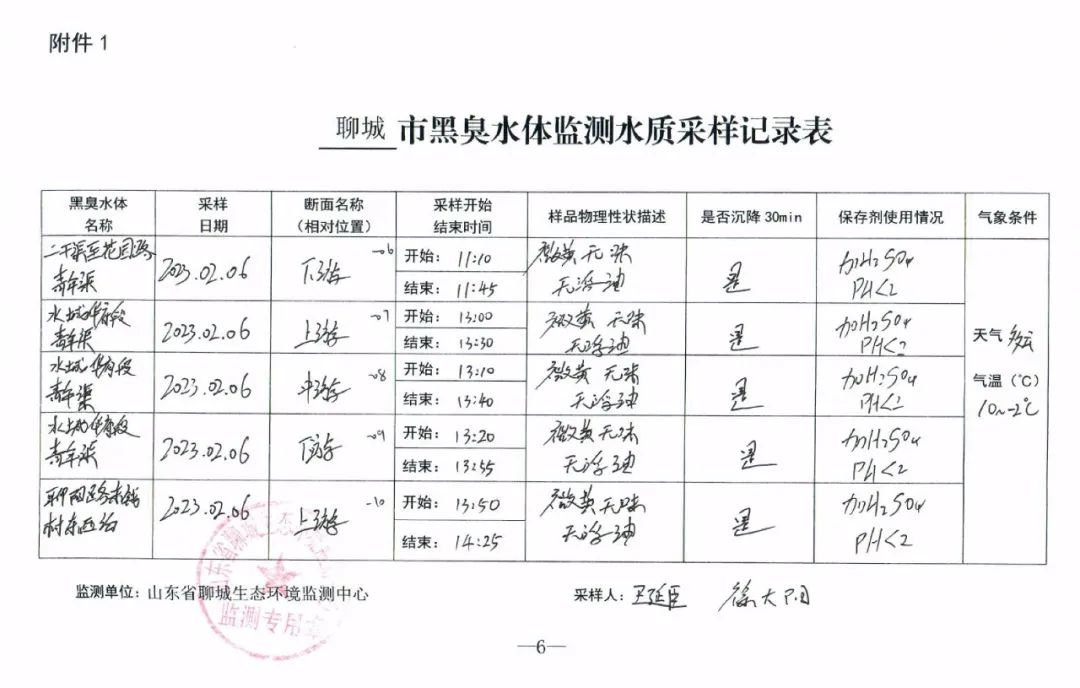 附件1
聊城 市黑臭水体监测水质采样记录表
黑臭水体名称 采样日期 断面名称(相对位置) 采样开始结束时间 样品物理性状描述 是否沉降30min 保存剂使用情况 气象条件
二干渠至花园路
青年渠 2023.02.06 下游 -06 开始: 11:10 微黄 无味 是 加H2SO4
结束: 11:45 无浮油 PH<2
水城华府段
青年渠 2023.02.06 上游 -07 开始: 13:00 微黄 无味 是 加H2SO4
结束: 13:30 无浮油 PH<2
天气 多云
水城华府段
青年渠 2023.02.06 中游 -08 开始: 13:10 微黄 无味 是 加H2SO4
结束: 13:40 无浮油 PH<2
气温(℃)
10~-2℃
水城华府段
青年渠 2023.02.06 下游 -09 开始: 13:20 微黄 无味 是 加H2SO4
结束: 13:55 无浮油 PH<2
2023.02.06 上游 -10 开始: 13:50 微黄 无味 是 加H2SO4
结束: 14:25 无浮油 PH<2
监测单位: 山东省聊城生态环境监测中心 采样人: 王延臣 徐大阳
监测专用章
—6—